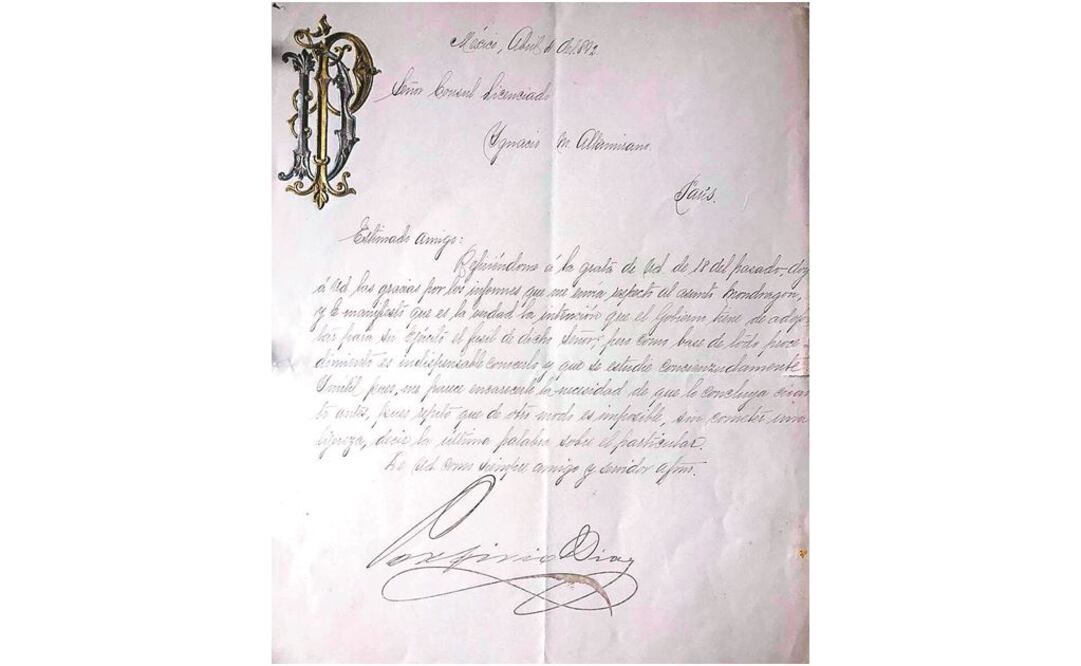 PD
México, Abril de 1892
Señor Consul Licenciado
Ygnacio M. Altamirano.
París.
Estimado amigo:
Refiriéndome á la grata de Ud. de 18 del pasado, doy
á Ud. las gracias por los informes que me envía respecto al asunto Mondragon,
y le manifesto que es la verdad la intención que el Gobierno tiene de adop
tar para su Ejército el fusil de dicho Señor; pero como base de todo proce
dimiento es indispensable conocerlo y que se estudie concienzudamente
Inutil pues, me parece encarecerle la necesidad de que lo concluya cuan
to antes, pues repito que de otro modo es imposible, sin cometer una
ligereza, decir la última palabra sobre el particular.
De Ud. como siempre amigo y servidor afmo.
Porfirio Diaz